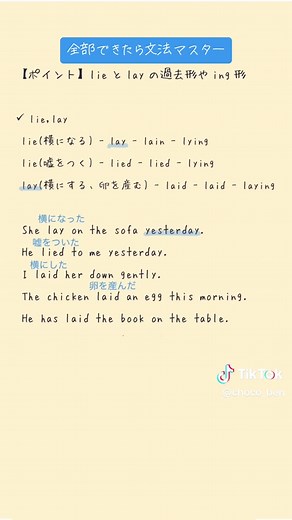 全部できたら文法マスター
【ポイント】lie と lay の過去形や ing 形
✓ lie, lay
lie(横になる) - lay - lain - lying
lie(嘘をつく) - lied - lied - lying
lay(横にする、卵を産む) - laid - laid - laying
横になった
She lay on the sofa yesterday.
嘘をついた
He lied to me yesterday.
横にした
I laid her down gently.
卵を産んだ
The chicken laid an egg this morning.
He has laid the book on the table.
TikTok